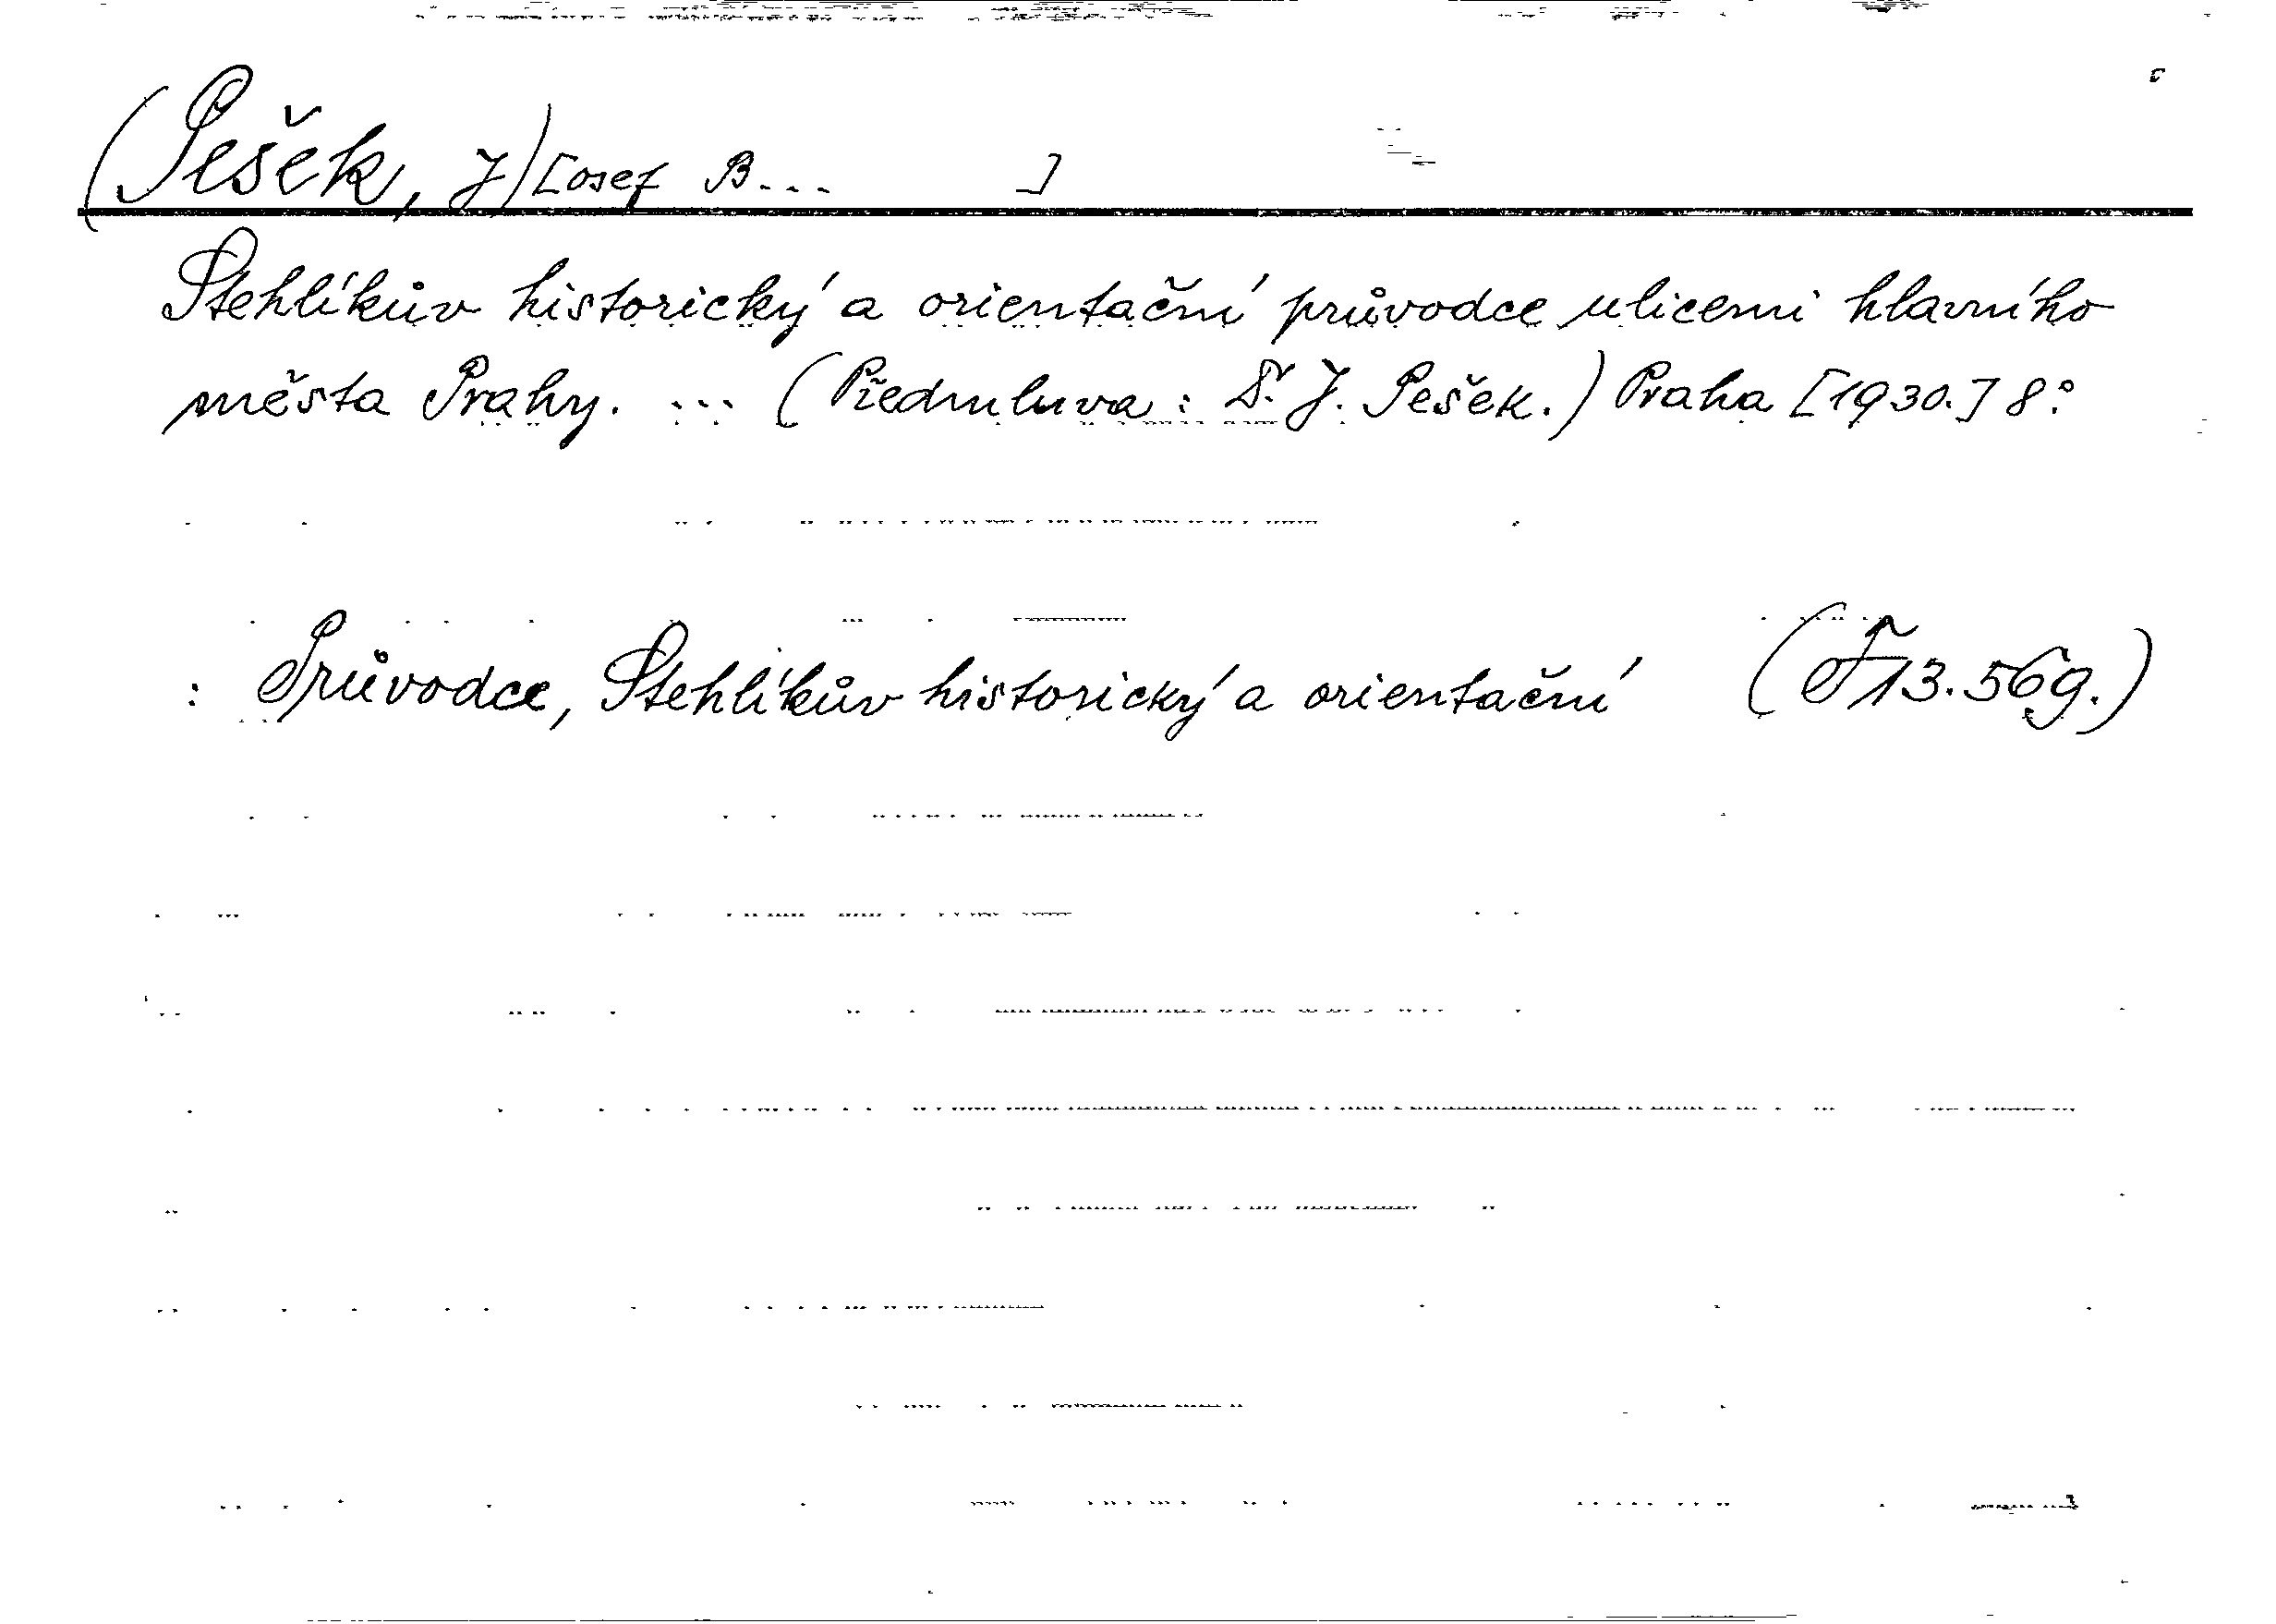 (Pešek, J)[osef B... ]
Stehlíkův historický a orientační průvodce ulicemi hlavního
města Prahy. ... (Předmluva: Dr. J. Pešek.) Praha [1930.] 8°.
: Průvodce, Stehlíkův historický a orientační (F 13.569.)